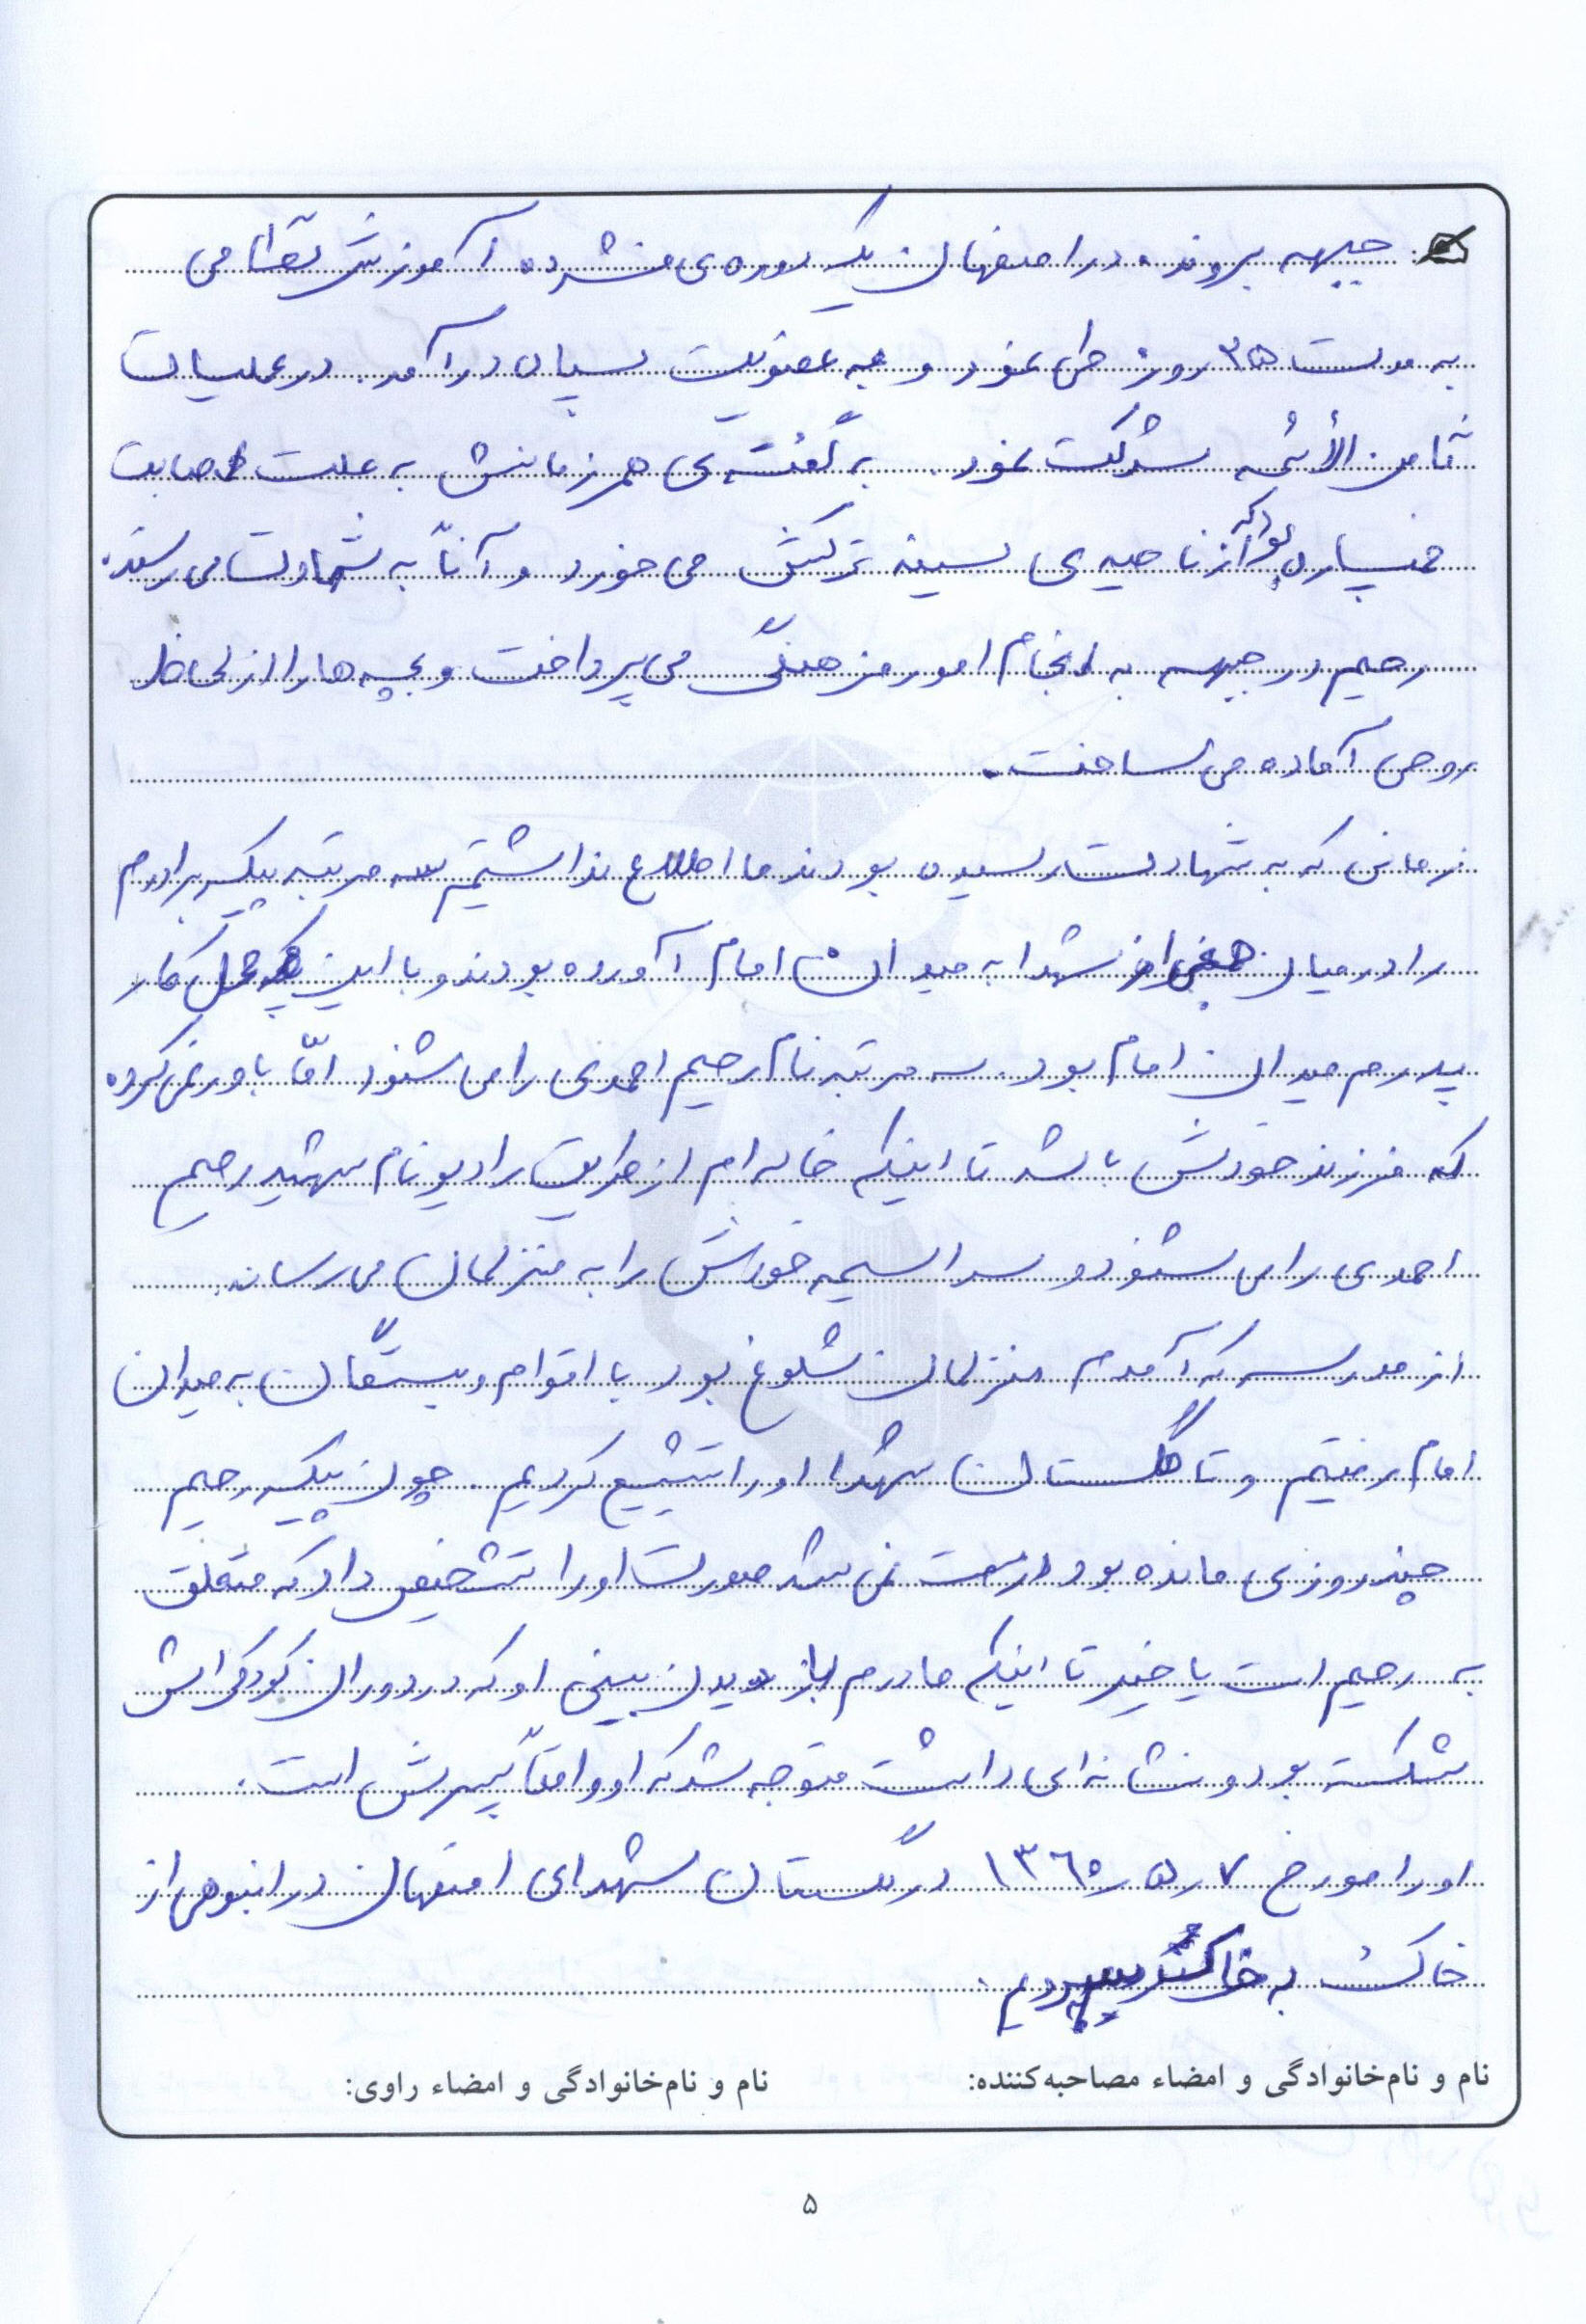 جبهه برونده در اصفهان یک دوره‌ی فشرده آموزش نظامی
به مدت ۳۵ روز طی نمود و به عضویت سپاه درآمد. در عملیات
ثامن الأئمه شرکت نمود. به گفته‌ی همرزمانش به علت اصابت
خمپاره از ناحیه‌ی سینه ترکش می‌خورد و آناً به شهادت می‌رسند.
رحیم در جبهه به انجام امور فرهنگی می‌پرداخت و بچه‌ها را از لحاظ
روحی آماده می‌ساخت.
زمانی که به شهادت رسیده بودند ما اطلاع نداشتیم سه مرتبه پیکر برادرم
را در میان شهدا به میدان امام آورده بودند و با این که محل کار
پدرم میدان امام بود. سه مرتبه نام رحیم احمدی را می‌شنود امّا باور نمی‌کرده
که فرزند خودش باشد تا اینکه خاله‌ام از طریق رادیو نام شهید رحیم
احمدی را می‌شنود و سراسیمه خودش را به منزلمان می‌رساند.
از مدرسه که آمدم منزلمان شلوغ بود با اقوام و بستگان به میدان
امام رفتیم و تا گلستان شهدا او را تشییع کردیم. چون پیکر رحیم
چند روزی مانده بود درست نمی‌شد صورت او را تشخیص داد که متعلق
به رحیم است یا خیر تا اینکه مادرم از دیدن بینی او که در دوران کودکی‌اش
شکسته بود و نشانه‌ای داشت متوجه شد که او واقعاً پسرش است.
او را مورخ ۷ ر ۵ ر ۱۳۶۵ در گلستان شهدای اصفهان در انبوهی از
خاک به خاک سپردیم.
نام و نام‌خانوادگی و امضاء مصاحبه‌کننده: نام و نام‌خانوادگی و امضاء راوی:
۵